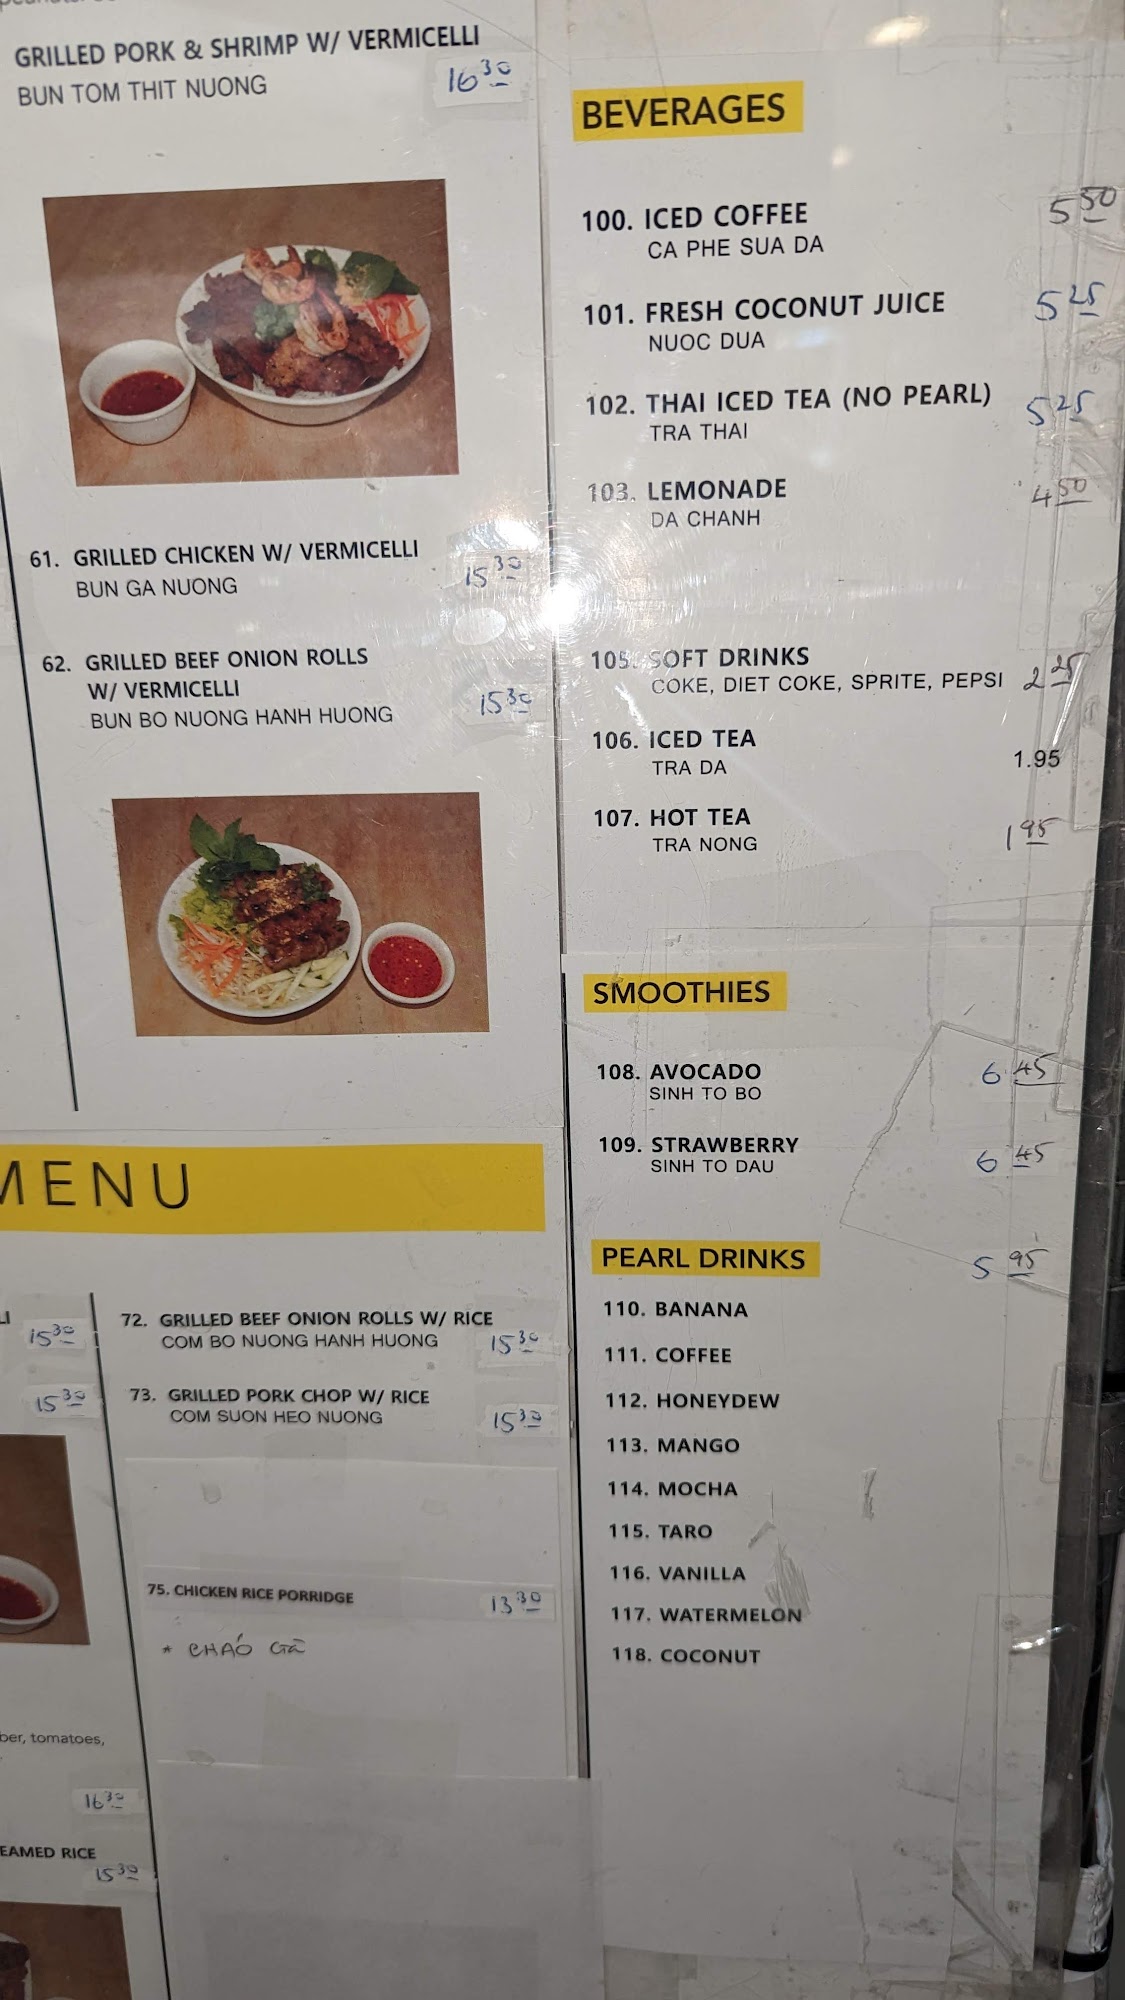 GRILLED PORK & SHRIMP W/ VERMICELLI
BUN TOM THIT NUONG
16 30
61. GRILLED CHICKEN W/ VERMICELLI
BUN GA NUONG
15 30
62. GRILLED BEEF ONION ROLLS
W/ VERMICELLI
BUN BO NUONG HANH HUONG
15 30
MENU
15 30
15 30
72. GRILLED BEEF ONION ROLLS W/ RICE
COM BO NUONG HANH HUONG
15 30
73. GRILLED PORK CHOP W/ RICE
COM SUON HEO NUONG
15 30
75. CHICKEN RICE PORRIDGE
13 30
* CHÁO GÀ
tomatoes,
16 30
RICE
15 30
BEVERAGES
100. ICED COFFEE
5 50
CA PHE SUA DA
101. FRESH COCONUT JUICE
5 25
NUOC DUA
102. THAI ICED TEA (NO PEARL)
5 25
TRA THAI
103. LEMONADE
4 50
DA CHANH
105. SOFT DRINKS
COKE, DIET COKE, SPRITE, PEPSI
2 25
106. ICED TEA
TRA DA
1.95
107. HOT TEA
TRA NONG
1 95
SMOOTHIES
108. AVOCADO
6 45
SINH TO BO
109. STRAWBERRY
6 45
SINH TO DAU
PEARL DRINKS
5 95
110. BANANA
111. COFFEE
112. HONEYDEW
113. MANGO
114. MOCHA
115. TARO
116. VANILLA
117. WATERMELON
118. COCONUT